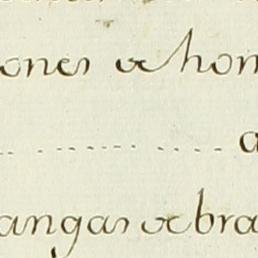 ones de hom
a
angas de bra